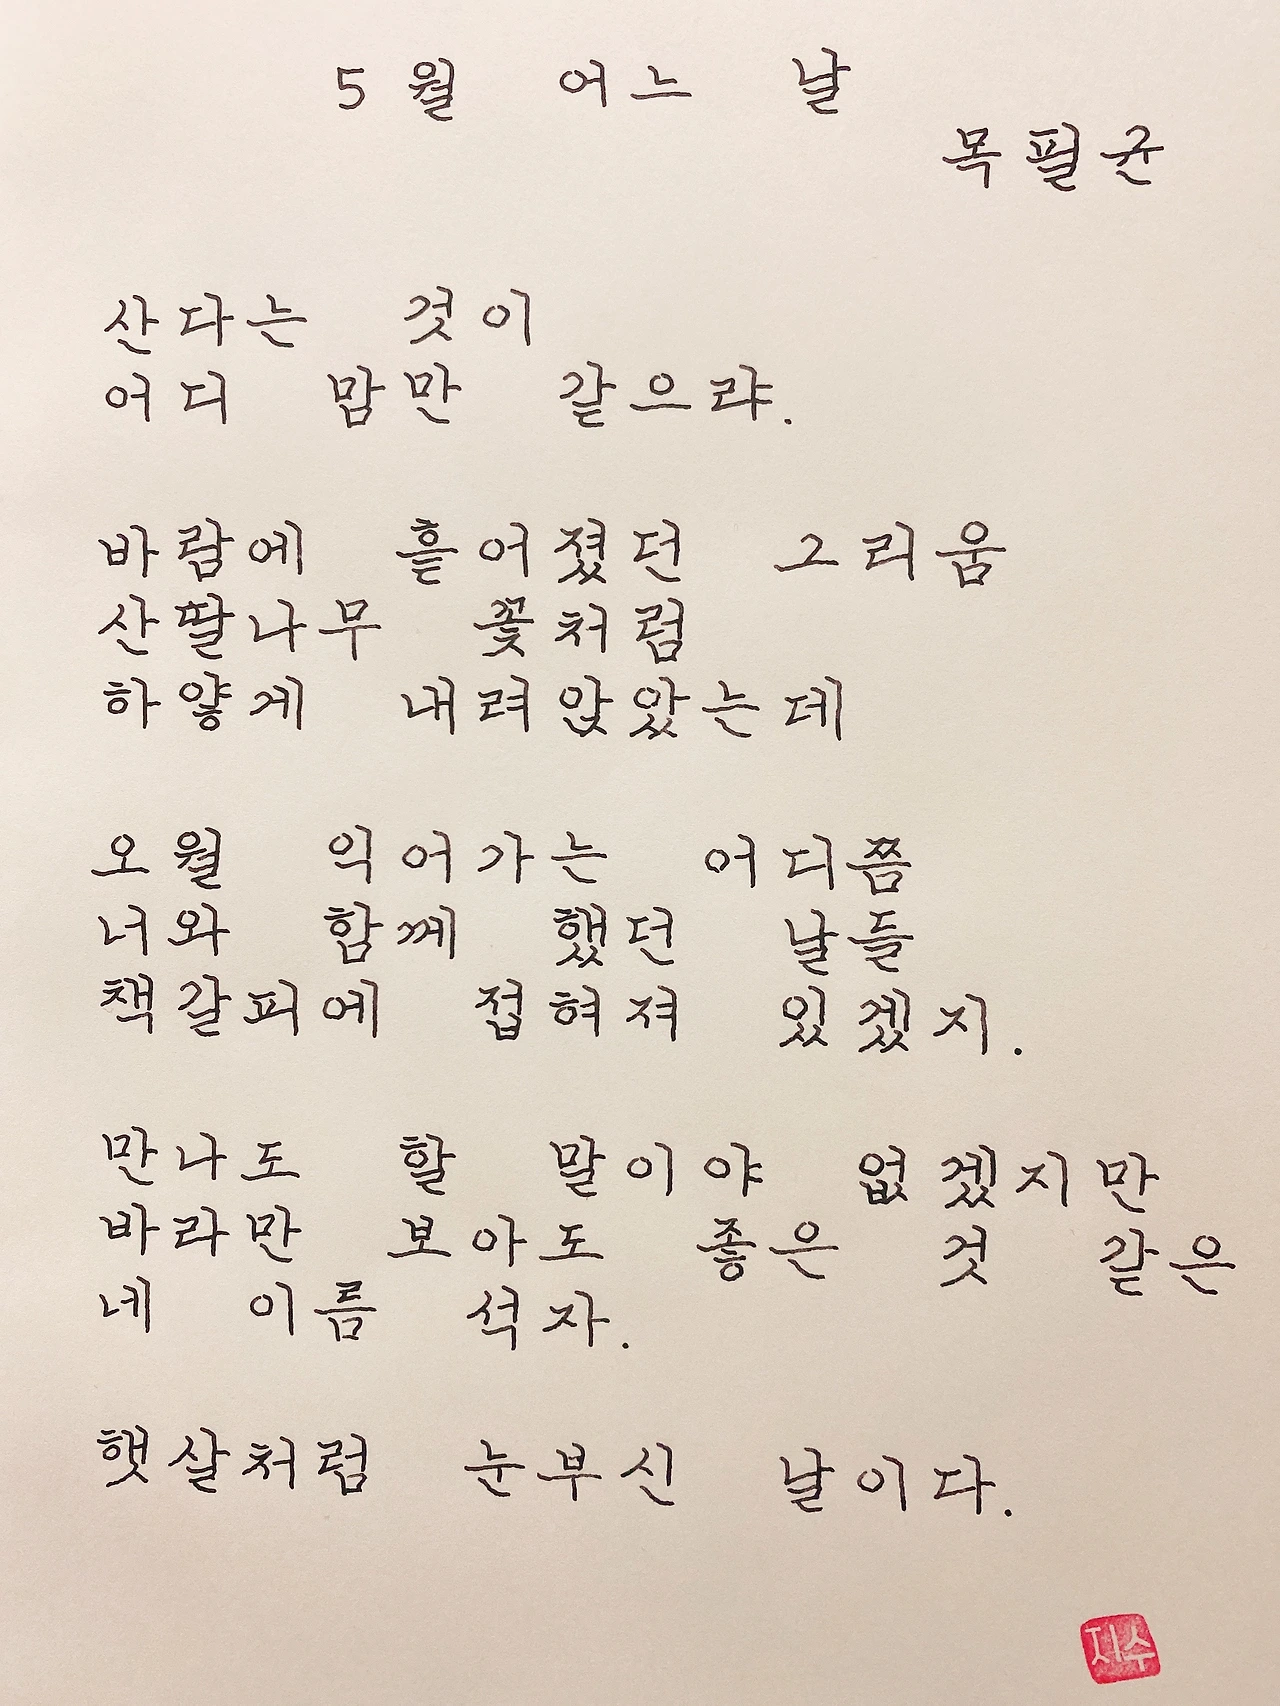 5월 어느 날
목필균
산다는 것이
어디 맘만 같으랴.
바람에 흩어졌던 그리움
산딸나무 꽃처럼
하얗게 내려앉았는데
오월 익어가는 어디쯤
너와 함께 했던 날들
책갈피에 접혀져 있겠지.
만나도 할 말이야 없겠지만
바라만 보아도 좋은 것 같은
네 이름 석자.
햇살처럼 눈부신 날이다.
지수